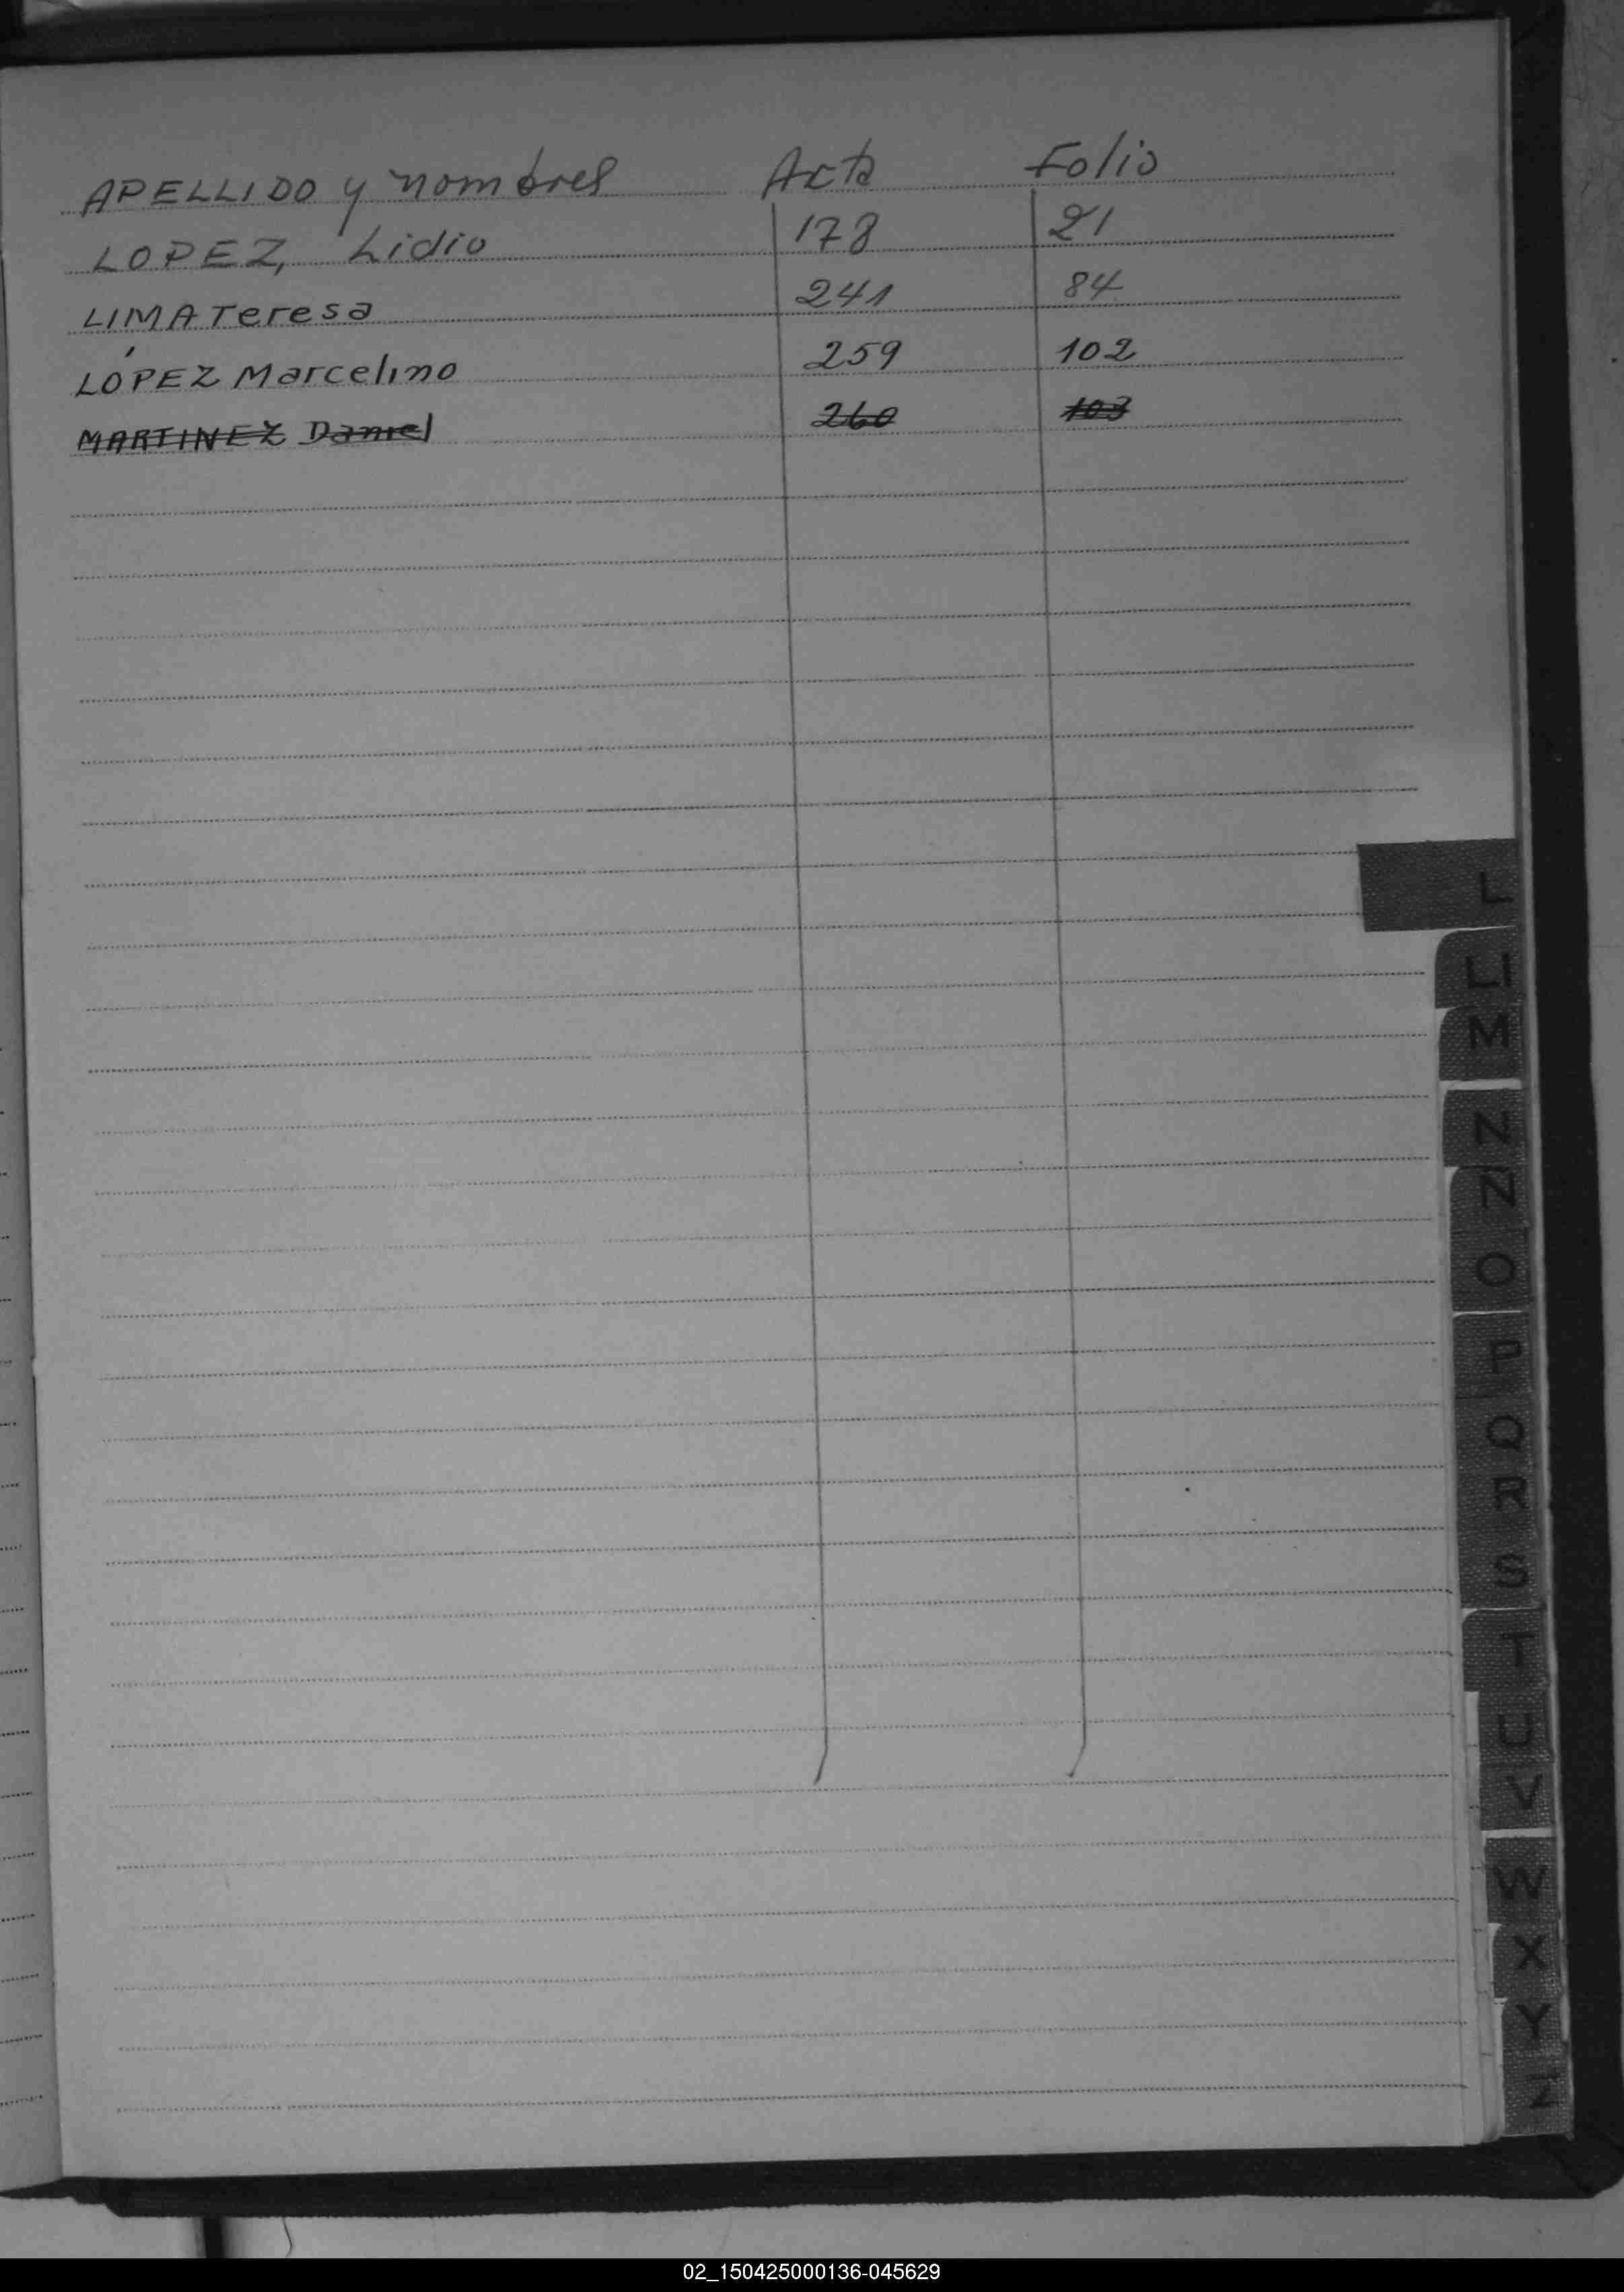 APELLIDO y nombres Acta Folio
LOPEZ, Lidio 178 21
LIMA Teresa 241 84
LÓPEZ Marcelino 259 102
MARTINEZ Daniel 260 103
L
LL
M
N
Ñ
O
P
Q
R
S
T
U
V
W
X
Y
Z
02_150425000136-045629